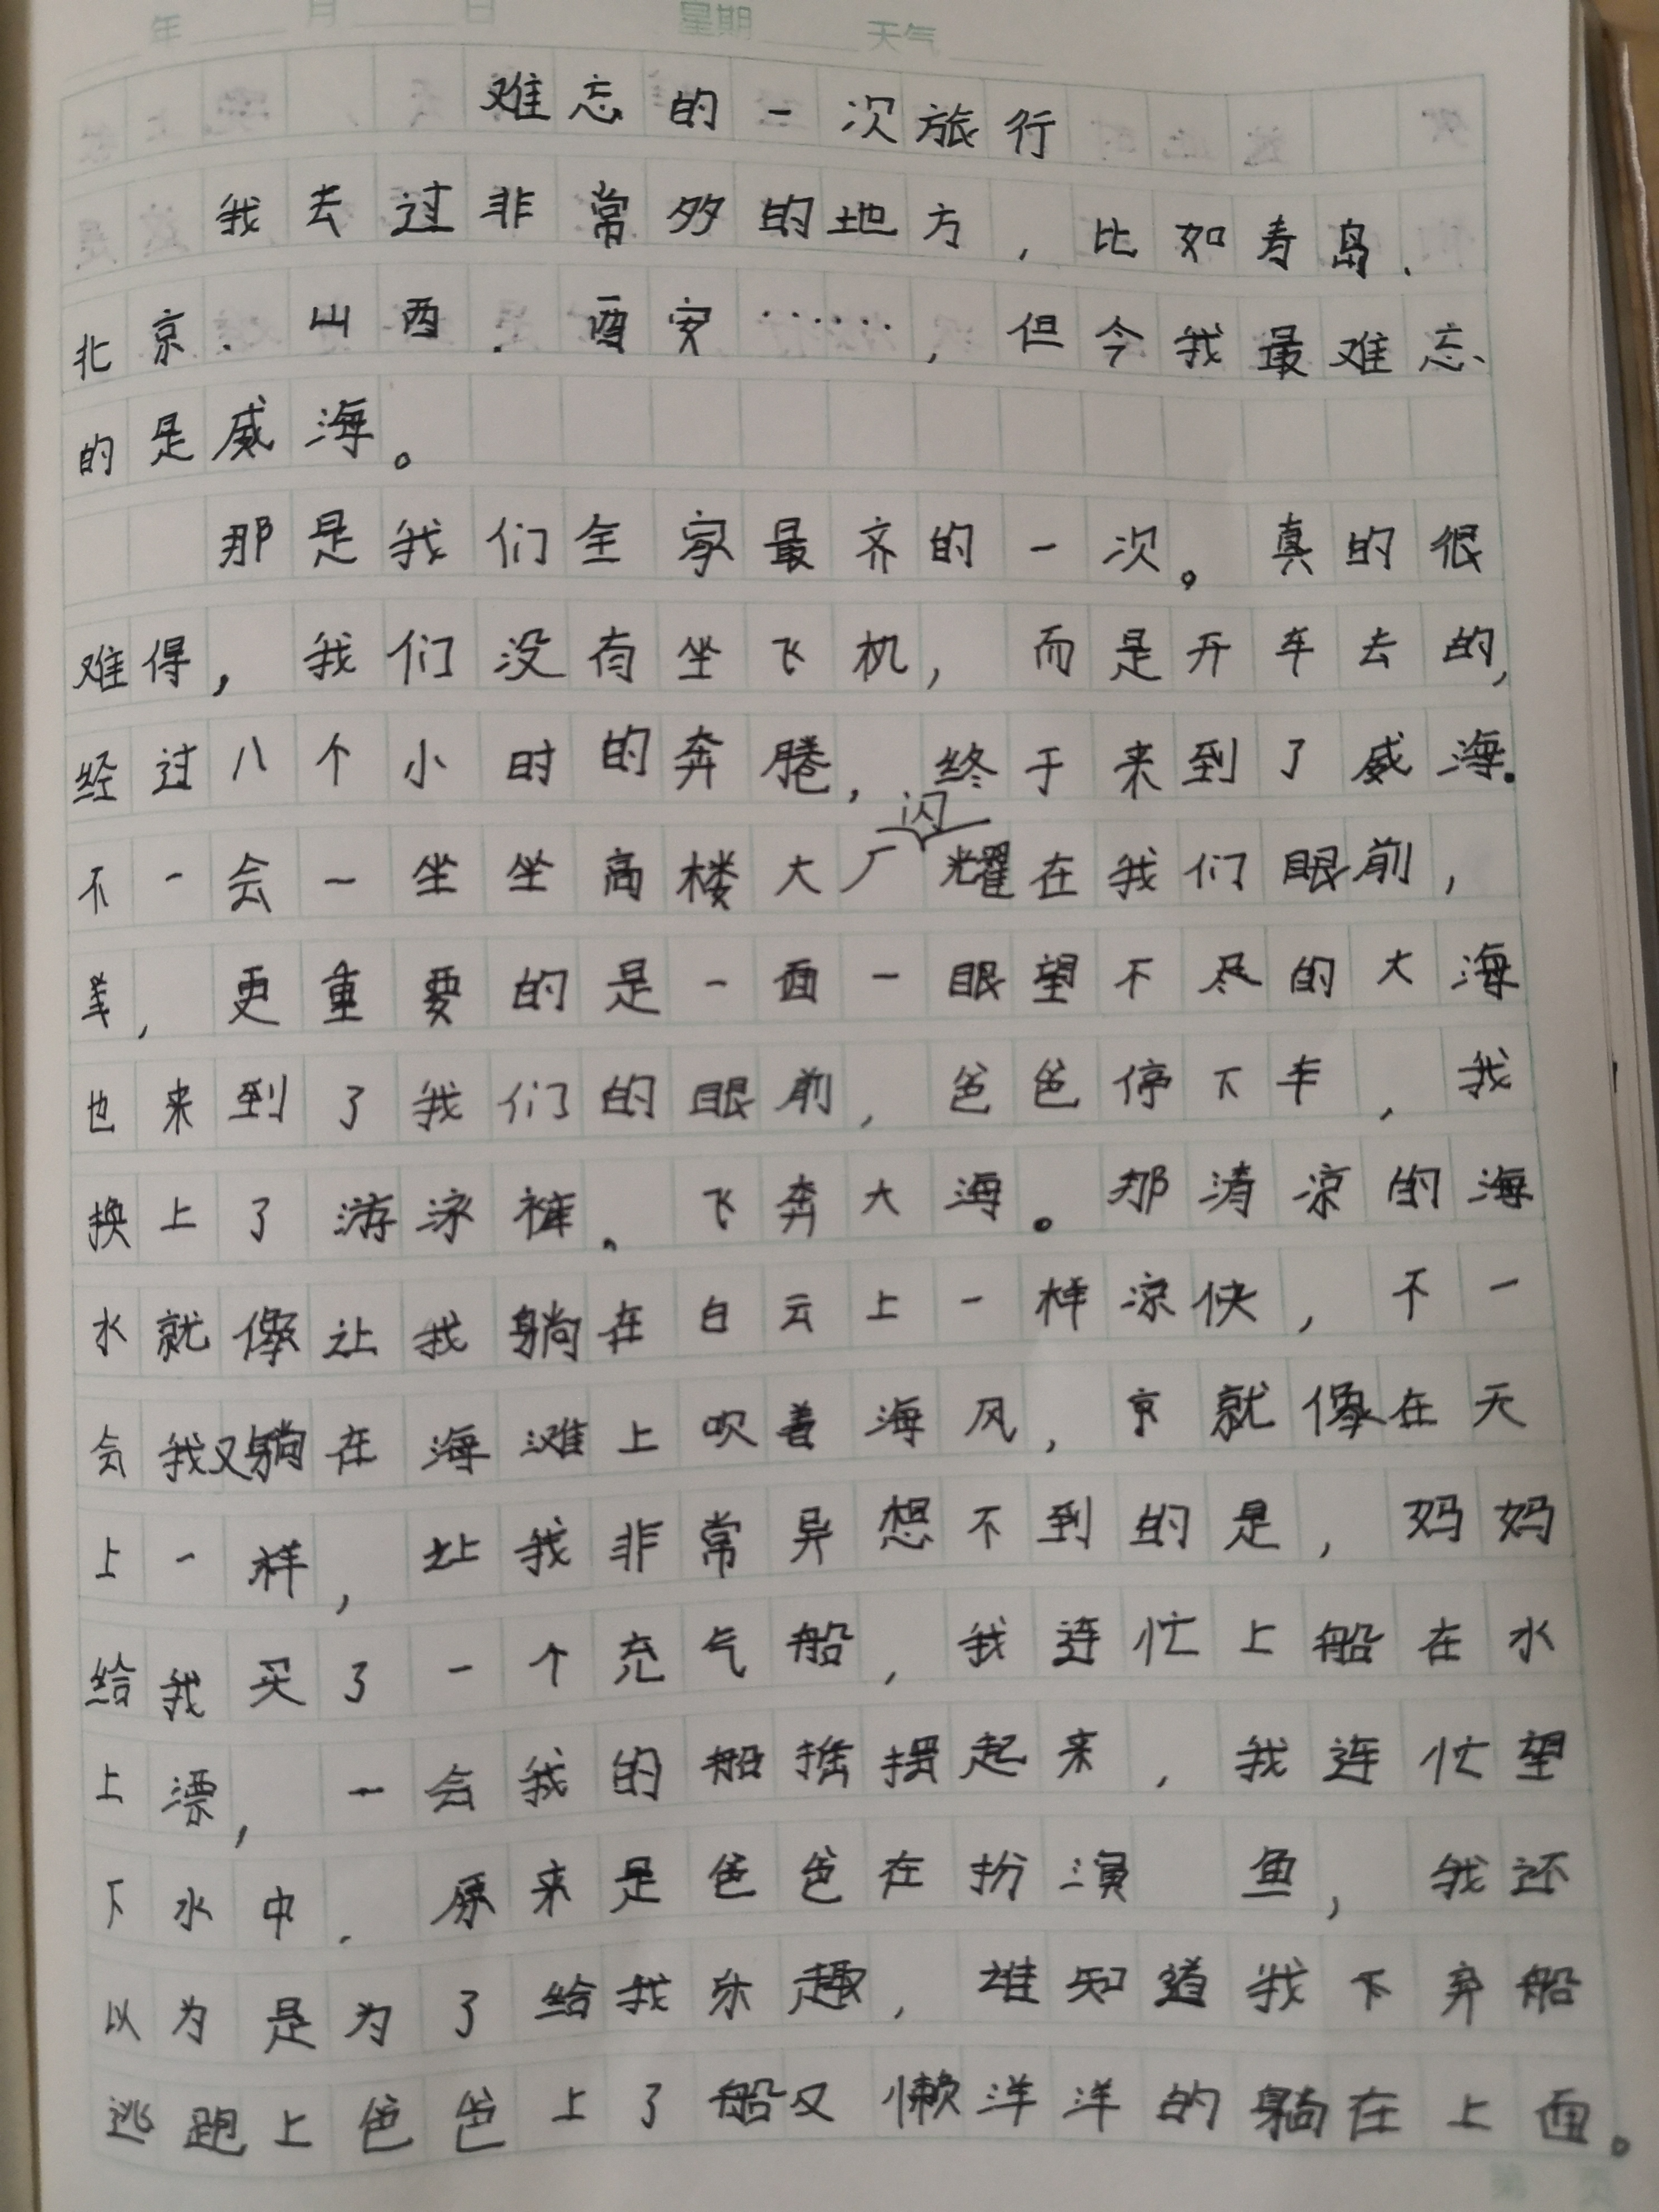 年 月 日 星期 天气
难忘的一次旅行
我去过非常多的地方，比如青岛、
北京、山西、西安……，但令我最难忘
的是威海。
那是我们全家最齐的一次。真的很
难得，我们没有坐飞机，而是开车去的，
经过八个小时的奔腾，终于来到了威海。
不一会一坐坐高楼大厂闪耀在我们眼前，
，更重要的是一面一眼望不尽的大海
也来到了我们的眼前，爸爸停下车，我
换上了游泳裤。飞奔大海。那清凉的海
水就像让我躺在白云上一样凉快，不一
会我又躺在海滩上吹着海风，就像在天
上一样，让我非常异想不到的是，妈妈
给我买了一个充气船，我连忙上船在水
上漂，一会我的船摇摆起来，我连忙望
下水中．原来是爸爸在扮演鱼，我还
以为是为了给我乐趣，谁知道我下弃船
逃跑上爸爸上了船又懒洋洋的躺在上面。